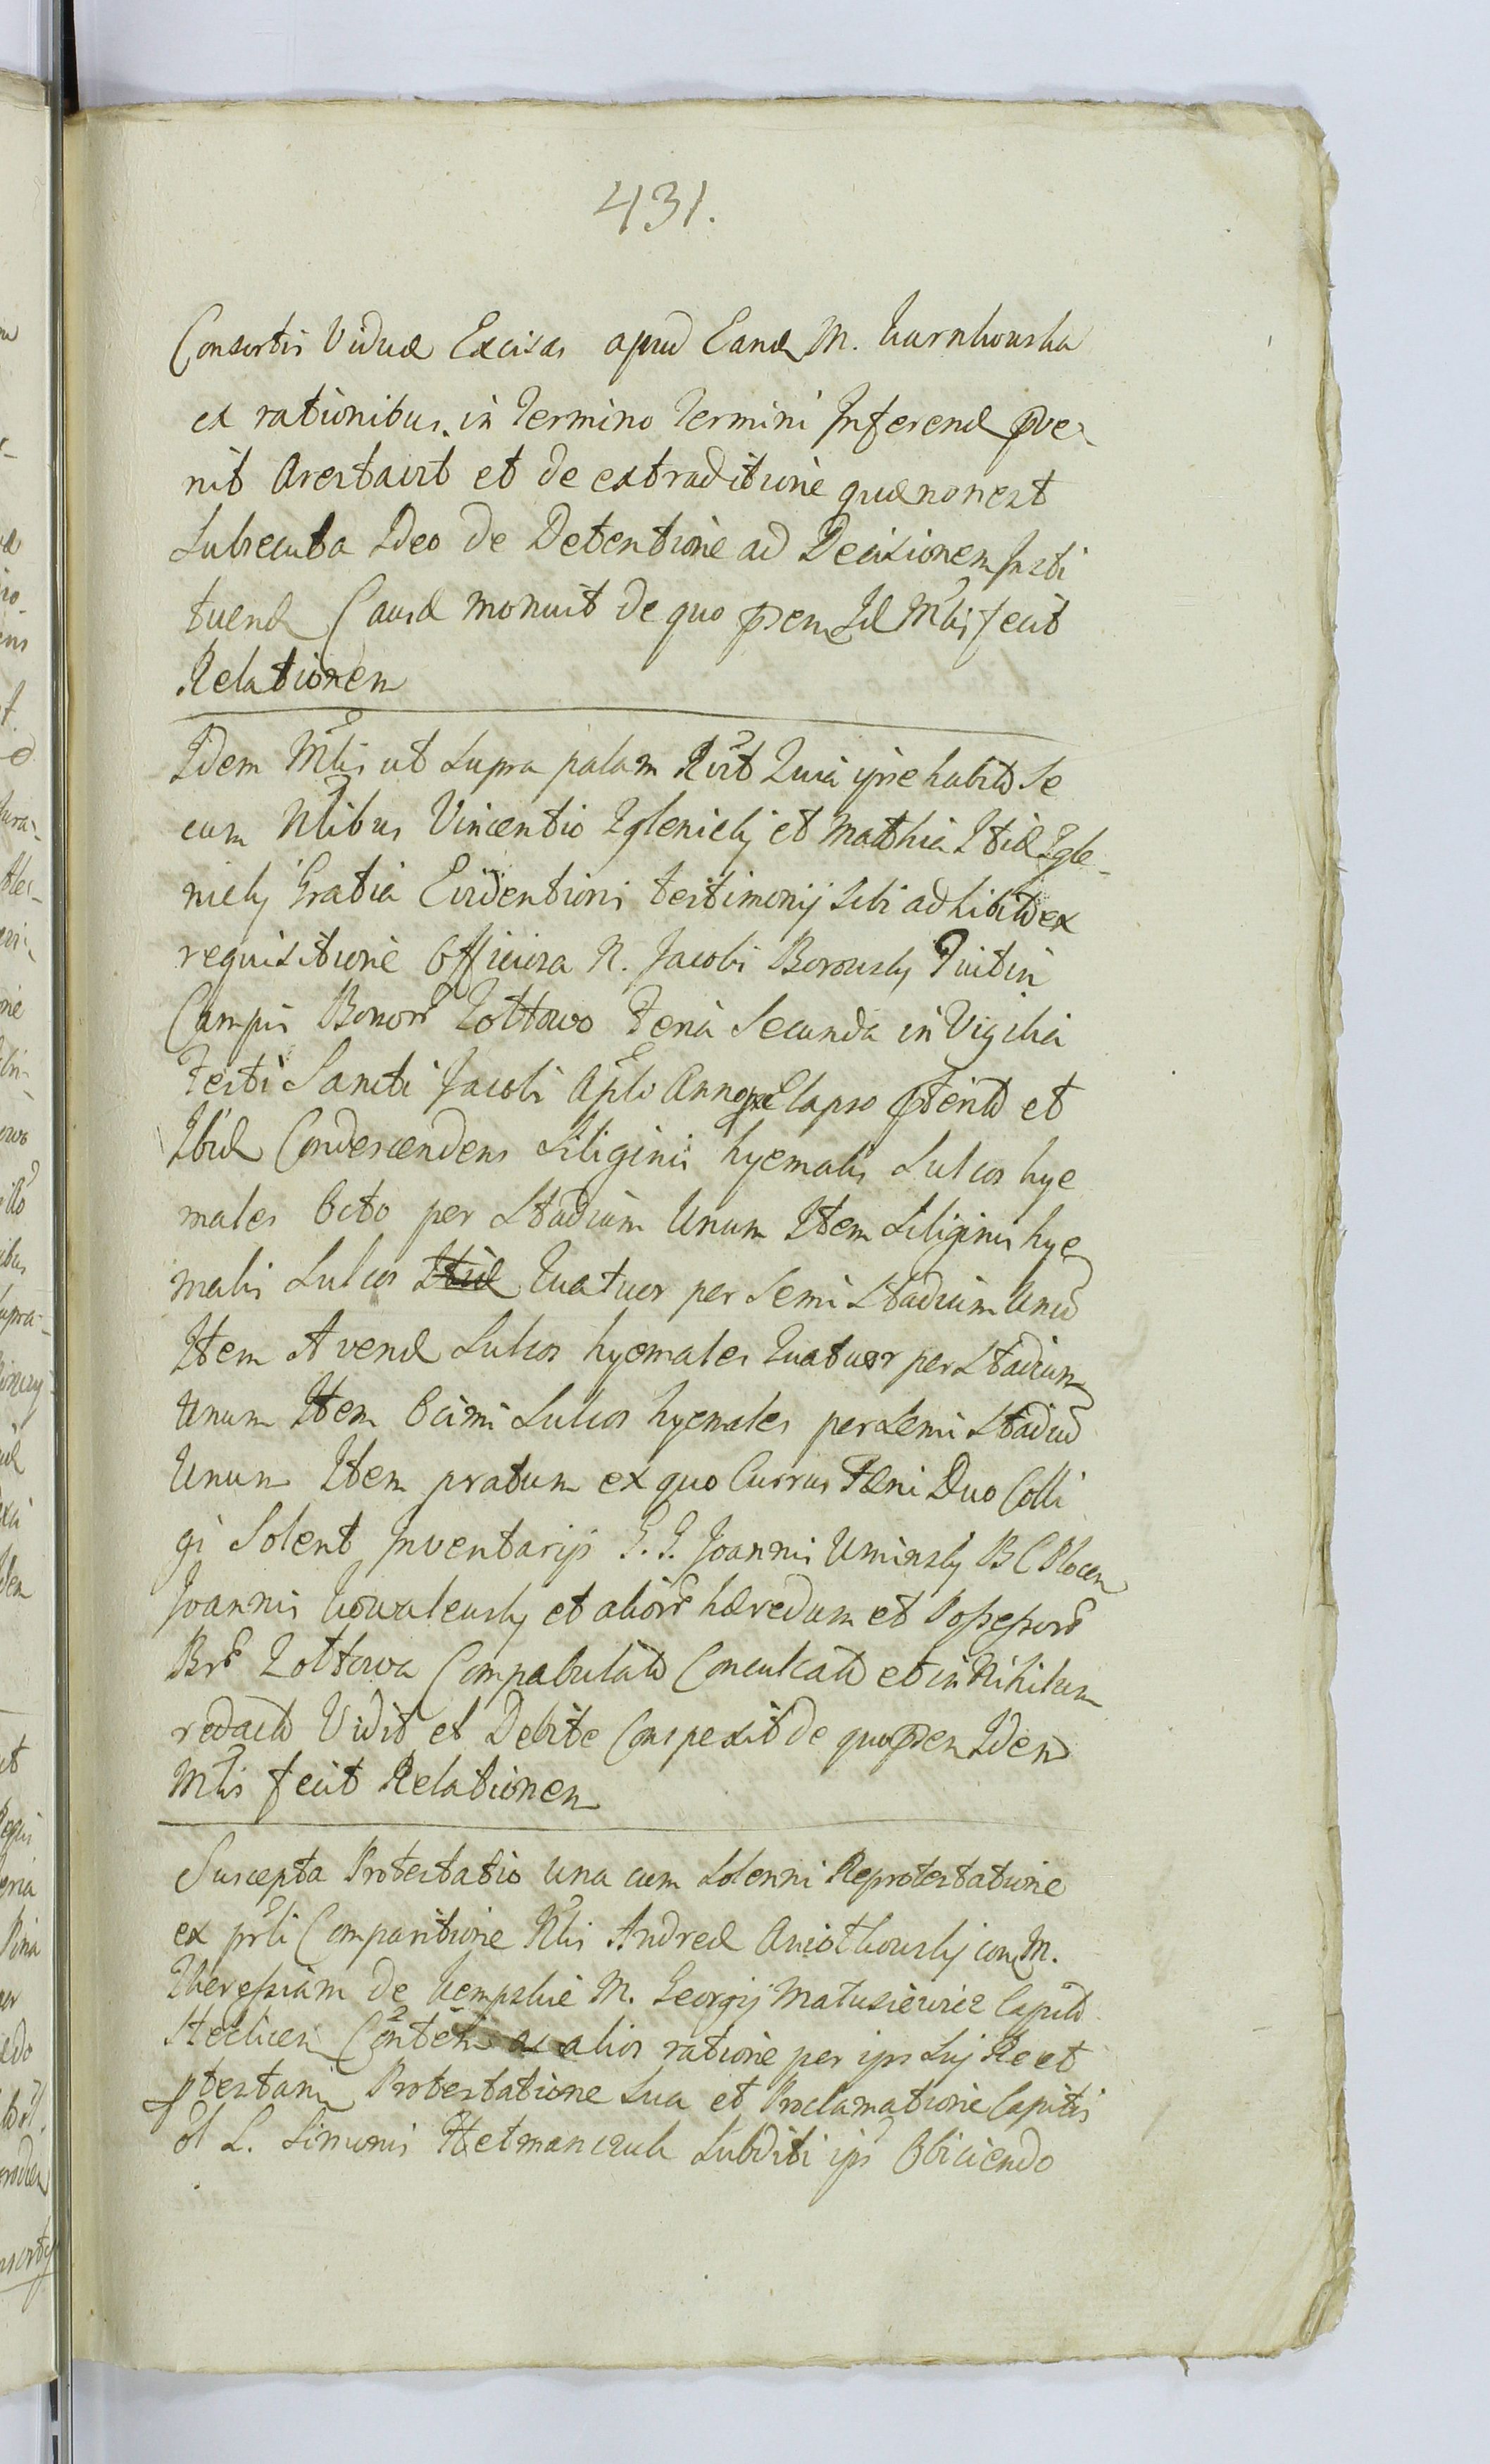 431.
Consortis Viduæ Excisas apud Eand M. Kurnkowska
ex rationibus in Termino Termini Inferend prve-
nit Arestavit et de extraditione quæ non est
Subsecuta Ideo de Detentione ad Decisionem Insti
tuend Causæ monuit de quo præn Id Mlis fecit
Relationem
Idem Mlis ut Supra palam Rvit Quia ipse habitd Se
cum Nlibus Vincentio Zglenicki et Matthia Itid Zgle-
nicki Gratia Evidentioris testimonij Sibi adhibitd ex
requisitione Officiosa N. Jacobi Borowski Fuit in
Campis Bonorr Zottowo Feria Secunda in Vigilia
Festi Sancti Jacobi Apli Anno præ Elapso pteritd et
Ibid Condescendens Siliginis hyemalis Sulcos hye
males Octo per Stadium Unum Item Siliginis hye
malis Sulcos Itid Quatuor per Semi Stadium Unud
Item Avenæ Sulcos hyemales Quatuor per Stadium
Unum Item Ocimi Sulcos hyemales per Semi Stadiud
Unum Item pratum ex quo Currus Fæni Duo Colli
gi Solent Inventarijs G. G. Joannis Uminski B C Plocen
Joannis Kowalewski et aliorr hæredum et Possessorr
Brr Zottowa Compabulatd Conculcatd et in Nihilum
redactd Vidit et Debite Conspexit de quo præn Idem
Mlis fecit Relationem
Suscepta Protestatio una cum Solenni Reprotestatione
ex prli Comparitione Nlis Andreæ Aniotkowski con M.
Theressiam de Kempskie M. Georgij Matusiewicz Capitd
Steclicen Conten ac alios ratione per ips Suj Re et
ptestani Protestatione Sua et Proclamatione Capitis
ol L. Simonis Hetmanczuk Subditi ips Obiciendo